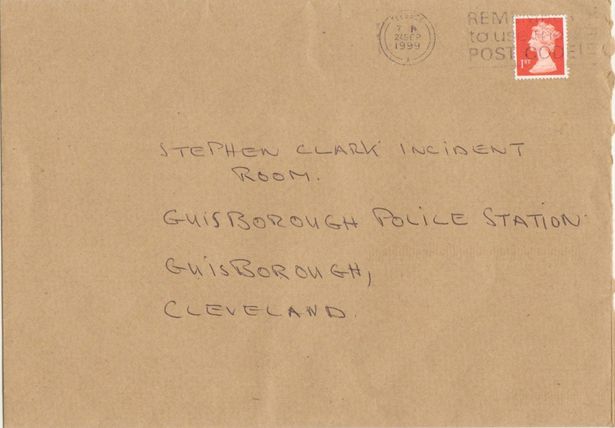 24 SEP
1999
REM
to use the
POST CODE
1ST
STEPHEN CLARK INCIDENT
ROOM.
GUISBOROUGH POLICE STATION
GUISBOROUGH,
CLEVELAND.